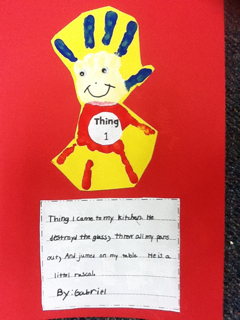 Thing
1
Thing 1 came to my kitchen. He
destroyd the glass, threw all my pans
out, And jumed on my table. He is a
littel rascal.
By: Gabriel